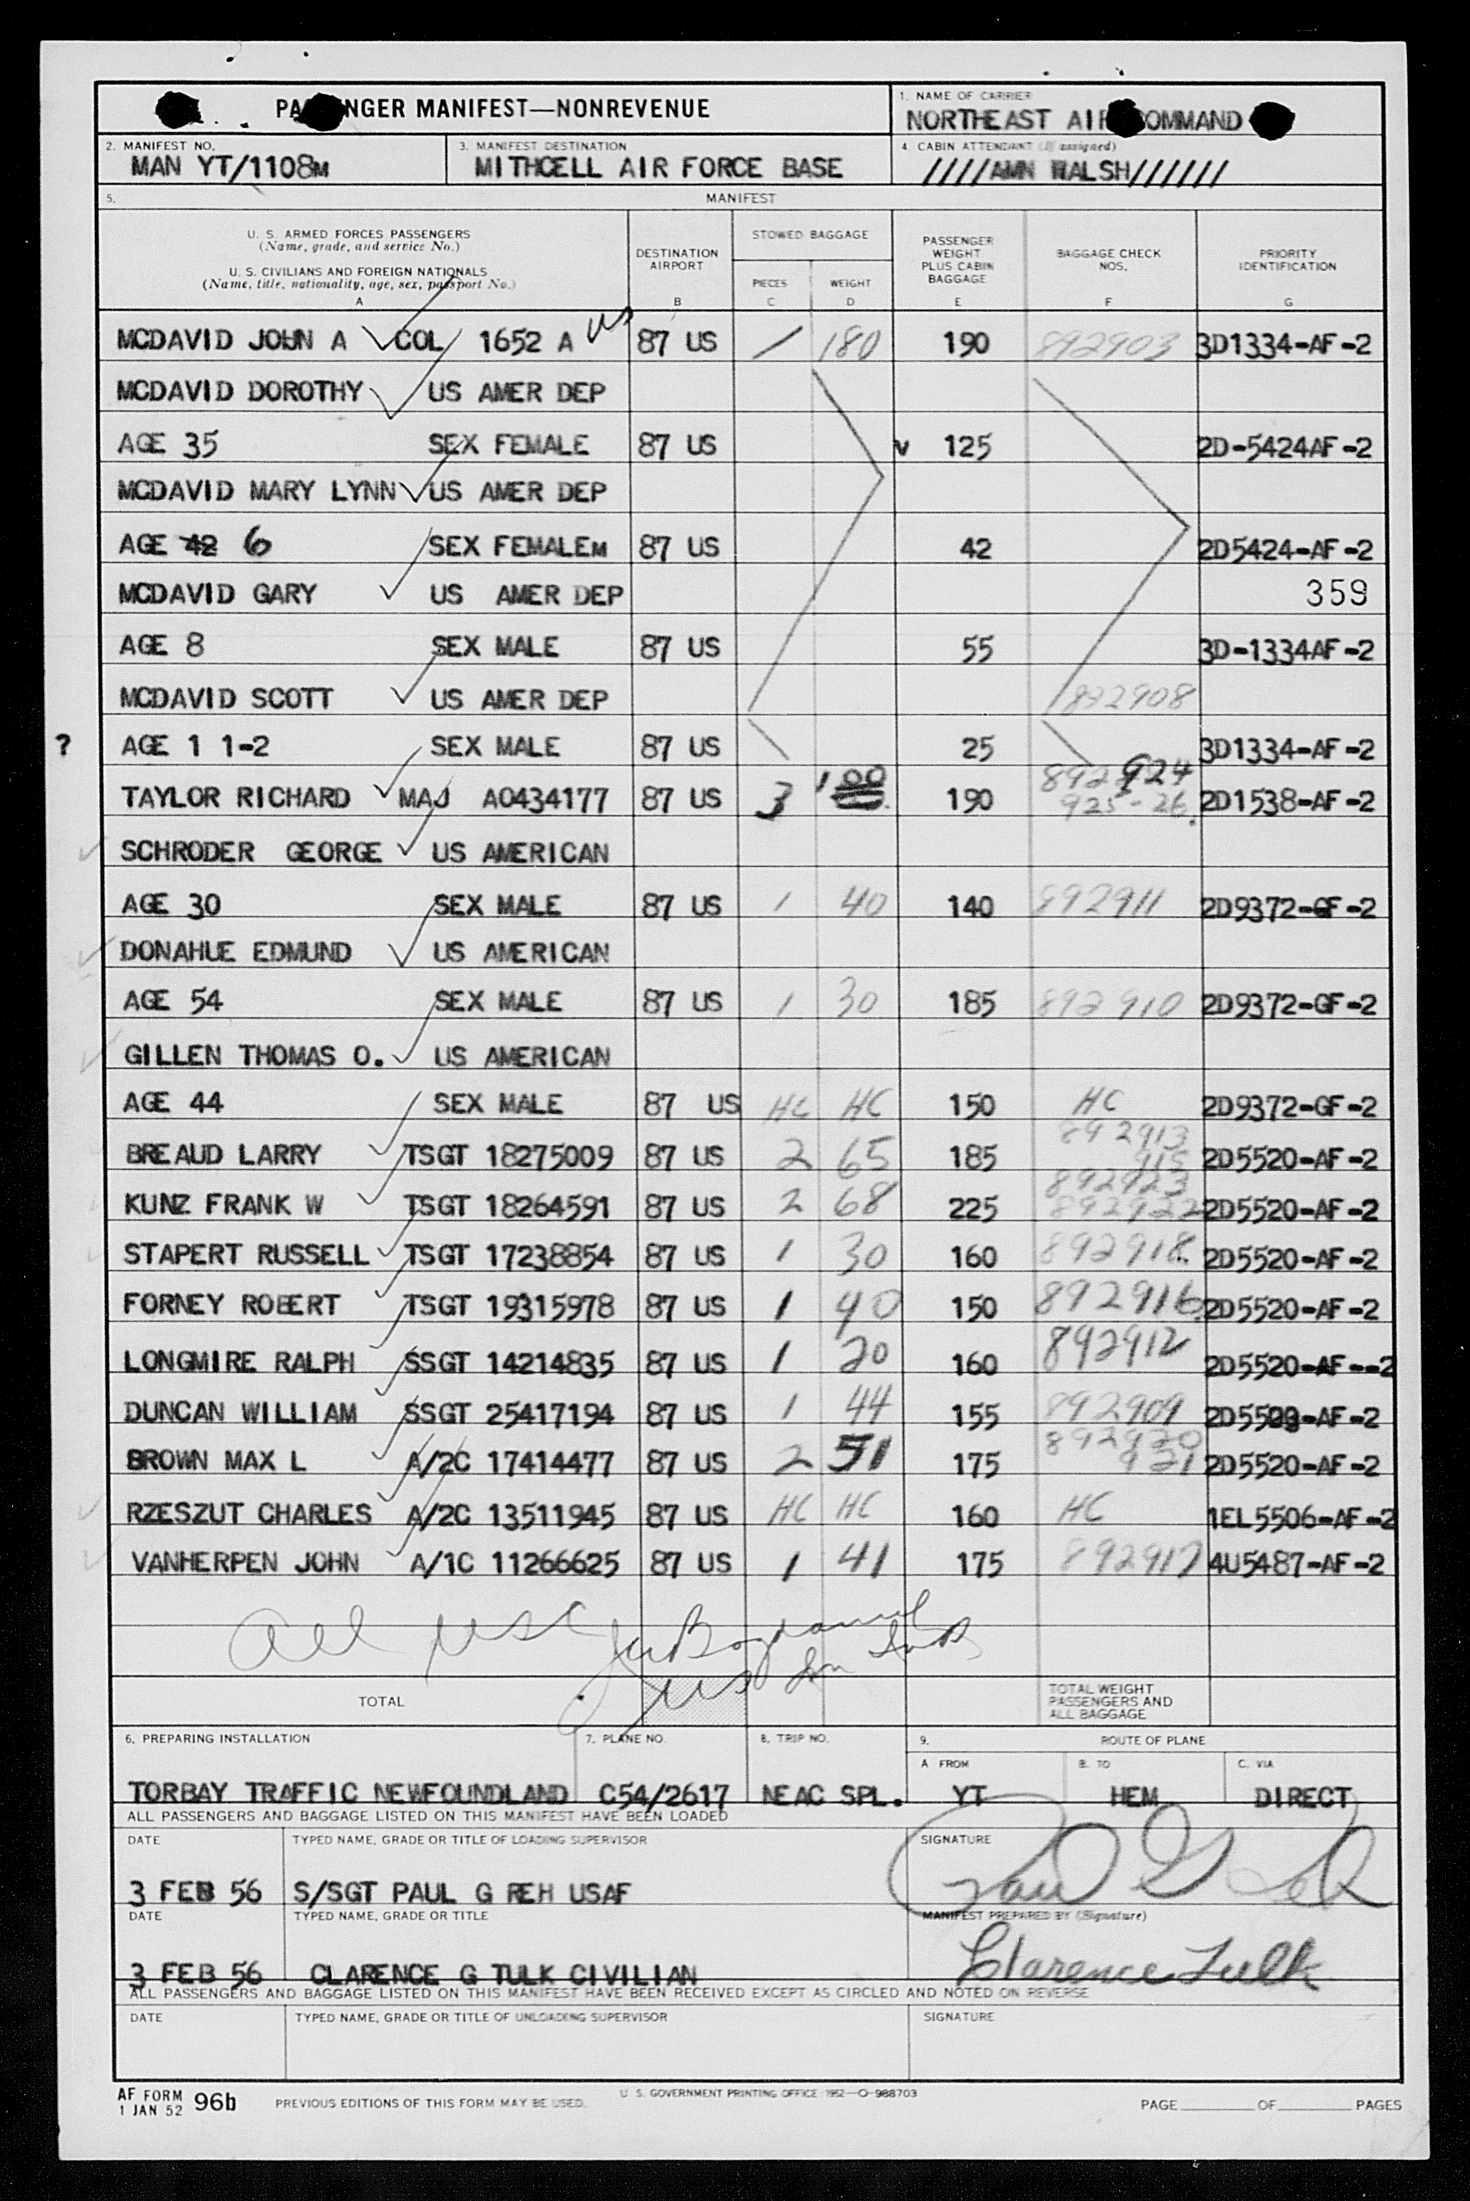 PA NGER MANIFEST—NONREVENUE
1. NAME OF CARRIER
NORTHEAST AIR COMMAND
2. MANIFEST NO.
MAN YT/1108M
3. MANIFEST DESTINATION
MITHCELL AIR FORCE BASE
4. CABIN ATTENDANT (If assigned)
////AMN WALSH//////
5. MANIFEST
U. S. ARMED FORCES PASSENGERS
(Name, grade, and service No.)
U. S. CIVILIANS AND FOREIGN NATIONALS
(Name, title, nationality, age, sex, passport No.)
A
DESTINATION
AIRPORT
B
STOWED BAGGAGE
PIECES
C
WEIGHT
D
PASSENGER
WEIGHT
PLUS CABIN
BAGGAGE
E
BAGGAGE CHECK
NOS.
F
PRIORITY
IDENTIFICATION
G
MCDAVID JOHN A COL 1652 A us 87 US 1 180 190 892903 3D1334-AF-2
MCDAVID DOROTHY US AMER DEP
AGE 35 SEX FEMALE 87 US v 125 2D-5424AF-2
MCDAVID MARY LYNN US AMER DEP
AGE 42 6 SEX FEMALEM 87 US 42 2D5424-AF-2
MCDAVID GARY US AMER DEP 359
AGE 8 SEX MALE 87 US 55 3D-1334AF-2
MCDAVID SCOTT US AMER DEP 892908
? AGE 1 1-2 SEX MALE 87 US 25 3D1334-AF-2
TAYLOR RICHARD MAJ AO434177 87 US 3 100 190 892924 925-26 2D1538-AF-2
SCHRODER GEORGE US AMERICAN
AGE 30 SEX MALE 87 US 1 40 140 892911 2D9372-GF-2
DONAHUE EDMUND US AMERICAN
AGE 54 SEX MALE 87 US 1 30 185 892910 2D9372-GF-2
GILLEN THOMAS O. US AMERICAN
AGE 44 SEX MALE 87 US HC HC 150 HC 2D9372-GF-2
BREAUD LARRY TSGT 18275009 87 US 2 65 185 892913 915 2D5520-AF-2
KUNZ FRANK W TSGT 18264591 87 US 2 68 225 892923 892922 2D5520-AF-2
STAPERT RUSSELL TSGT 17238854 87 US 1 30 160 892918 2D5520-AF-2
FORNEY ROBERT TSGT 19315978 87 US 1 40 150 892916 2D5520-AF-2
LONGMIRE RALPH SSGT 14214835 87 US 1 20 160 892912 2D5520-AF--2
DUNCAN WILLIAM SSGT 25417194 87 US 1 44 155 892909 2D5520-AF-2
BROWN MAX L A/2C 17414477 87 US 2 51 175 892920 921 2D5520-AF-2
RZESZUT CHARLES A/2C 13511945 87 US HC HC 160 HC 1EL5506-AF-2
VANHERPEN JOHN A/1C 11266625 87 US 1 41 175 892917 4U5487-AF-2
All USC
TOTAL
TOTAL WEIGHT
PASSENGERS AND
ALL BAGGAGE
6. PREPARING INSTALLATION
TORBAY TRAFFIC NEWFOUNDLAND
7. PLANE NO.
C54/2617
8. TRIP NO.
NEAC SPL.
9. ROUTE OF PLANE
A FROM
YT
B. TO
HEM
C. VIA
DIRECT
ALL PASSENGERS AND BAGGAGE LISTED ON THIS MANIFEST HAVE BEEN LOADED
DATE
3 FEB 56
TYPED NAME, GRADE OR TITLE OF LOADING SUPERVISOR
S/SGT PAUL G REH USAF
SIGNATURE
Paul G Reh
DATE
3 FEB 56
TYPED NAME, GRADE OR TITLE
CLARENCE G TULK CIVILIAN
MANIFEST PREPARED BY (Signature)
Clarence Tulk
ALL PASSENGERS AND BAGGAGE LISTED ON THIS MANIFEST HAVE BEEN RECEIVED EXCEPT AS CIRCLED AND NOTED ON REVERSE
DATE
TYPED NAME, GRADE OR TITLE OF UNLOADING SUPERVISOR
SIGNATURE
AF FORM 96b
1 JAN 52
PREVIOUS EDITIONS OF THIS FORM MAY BE USED.
U. S. GOVERNMENT PRINTING OFFICE 1952—O-988703
PAGE OF PAGES